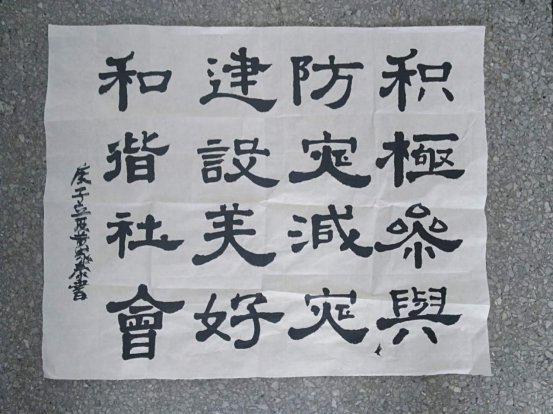 积極参與
防灾減灾
建設美好
和谐社會
庚子
書